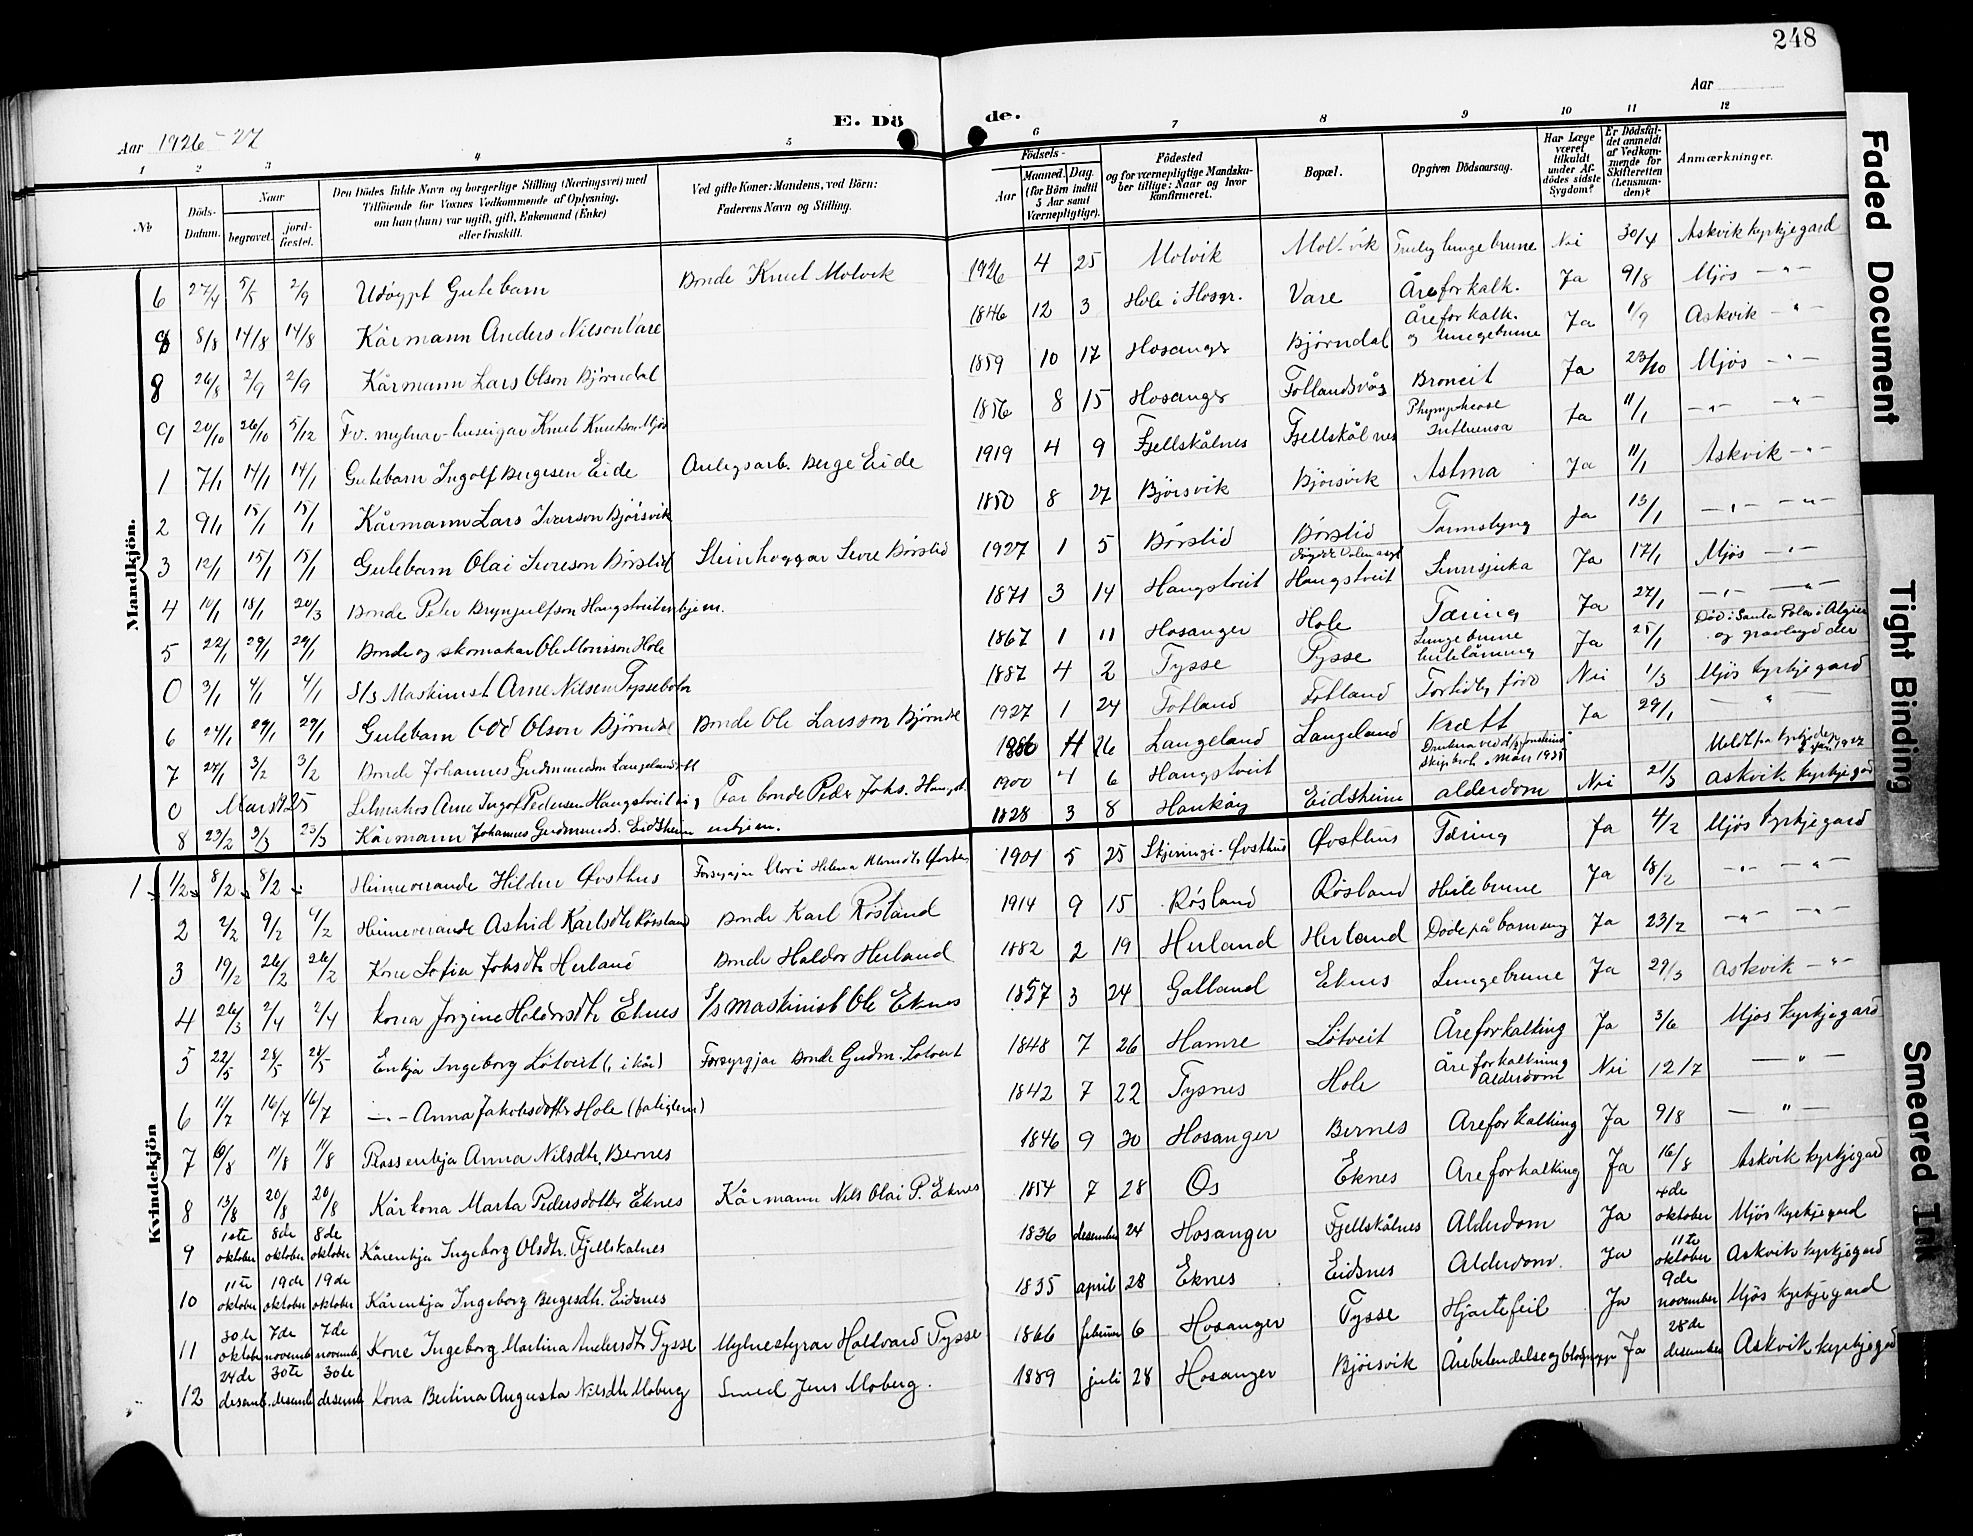 248
Aar 1926-27
E. Dö de.
Aar
1 2 3 4 5 6 7 8 9 10 11 12
No
Döds-Datum.
Naar
begravet.
jord-fæstet.
Den Dödes fulde Navn og borgerlige Stilling (Næringsvei) med
Tilföiende for Voxnes Vedkommende af Oplysning,
om han (hun) var ugift, gift, Enkemand (Enke)
eller fraskilt.
Ved gifte Koner: Mandens, ved Börn:
Faderens Navn og Stilling.
Födsels-
Aar
Maaned. Dag.
(for Börn indtil
5 Aar samt
Værnepligtige).
Födested
og for værnepligtige Mandska-
ber tillige: Naar og hvor
konfirmeret.
Bopæl.
Opgiven Dödsaarsag.
Har Læge
været
tilkaldt
under Af-
dödes sidste
Sygdom?
Er Dödsfal-
det anmeldt
af Vedkom-
mende for
Skifteretten
(Lensman-
den)?
Anmærkninger.
Mandkjön.
6 27/4 5/5 2/9 Udøypt Gutebarn Bonde Knut Molvik 1926 4 25 Molvik Molvik lungebrune Nei 30/4 Askvik kyrkjegard
8/8 14/8 14/8 Kårmann Anders Nilson Vare 1846 12 3 Hole i Hosgr. Vare Åreforkalk. Ja 9/8 Mjøs - " -
8 26/8 2/9 2/9 Kårmann Lars Olson Bjørndal 1859 10 17 Hosanger Bjørndal Åreforkalk. og lungebrune Ja 1/9 Askvik - " -
9 20/10 26/10 5/12 Fv. mylnar-huseigar Knut Knutson Mjøs 1856 8 15 Hosanger Fotlandsvåg Broncit Ja 23/10 Mjøs - " -
1 7/1 14/1 14/1 Gutebarn Ingolf Bergesen Eide Anlegsarb. Berge Eide 1919 4 9 Fjellskålnes Fjellskålnes Influensa Ja 11/1 - " - - " -
2 9/1 15/1 15/1 Kårmann Lars Ivarson Bjørsvik 1850 8 27 Bjørsvik Bjørsvik Astma Ja 11/1 Askvik - " -
3 12/1 15/1 15/1 Gutebarn Olai Severson Børslid Steinhoggar Børslid 1927 1 5 Børslid Børslid Tarmslyng Ja 13/1 - " - - " -
4 10/1 18/1 20/3 Bonde Peter Brynjulfson Haugstveit enkjem. 1871 3 14 Haugstveit Haugstveit Sinnsjuka Ja 17/1 Mjøs - " -
5 22/1 29/1 29/1 Bonde og skomakar Ole Monsson Hole 1867 1 11 Hosanger Hole Tæring Ja 27/1 - " - - " -
0 3/1 4/1 4/1 S/S Maskinist Arne Nilsen Tyssebotn 1887 4 2 Tysse Tysse Lungebrune Ja 25/1 Død i Santa Pola i Algier og gravlagd der
6 24/1 29/1 29/1 Gutebarn Odd Olson Bjørndal Bonde Ole Larsson Bjørndal 1927 1 24 Fotland Fotland Fortidleg fødd Nei 1/3 Mjøs kyrkjegard
7 27/1 3/2 3/2 Bonde Johannes Gudmundson Langeland 26 Langeland Langeland Kræft Ja 29/1 - " -
0 Mars 1925 Arne Ingolf Pedersen Haugstveit ug Far bonde Peder Johs. Haugst. 1900 4 6 Haugstveit
8 23/2 3/3 23/3 Kårmann Johannes Gudmunds. Eidsheim enkjem. 1828 3 8 Haukås Eidsheim alderdom Nei 21/3 Askvik kyrkjegard
Kvindekjön
1 1/2 8/2 8/2 Heimeverande Hildur Øvsthus 1901 5 25 Øvsthus Øvsthus Tæring Ja 4/2 Mjøs kyrkjegard
2 2/2 9/2 Heimeverande Astrid Karlsdtr Røssland Bonde Karl Røsland 1914 9 15 Røsland Røsland Heilebrune Ja 18/2 - " - - " -
3 19/2 26/2 26/2 Kone Sofia Johsdtr Herland Bonde Haldor Herland 1882 2 19 Herland Herland Døde på barnseng Ja 23/2 - " - - " -
4 26/3 2/4 2/4 Kona Jørgine Haldorsdtr Eknes S/S Maskinist Ole Eknes 3 24 Galland Eknes Lungebrune Ja 29/3 Askvik - " -
5 22/5 28/5 28/5 Enkja Ingeborg Løtveit (i kår) Forsyrgjar Bonde Gudm. Løtveit 1848 7 26 Hamre Løtveit Åreforkalking Ja 3/6 Mjøs kyrkjegard
6 11/7 16/7 16/7 - " - Anna Jakobsdotter Hole (fatiglem) 1842 7 22 Tysnes Hole Åreforkalkning Alderdom Nei 12/7 - " -
7 6/8 11/8 11/8 Plassenkja Anna Nilsdtr. Bernes 1846 9 30 Hosanger Bernes Åreforkalking Ja 9/8 - " -
8 13/8 20/8 20/8 Kårkona Marta Pedersdotter Eknes Kårmann Nils Olai P. Eknes 1854 7 28 Os Eknes Åreforkalking Ja 16/8 Askvik kyrkjegard
9 1ste oktober 8de oktober 8de oktober Kårenkja Ingeborg Olsdtr. Fjellskalnes 1836 desember 24 Hosanger Fjellskålnes Alderdom Ja 4de oktober Mjøs kyrkjegard
10 11te oktober 19de oktober 19de oktober Kårenkja Ingeborg Bergesdtr. Eidsnes 1835 april 28 Eknes Eidsnes Alderdom. Ja 11te oktober Askvik kyrkjegard
11 30te oktober 7de novemb. 7de novemb. Kone Ingeborg Martina Andersdtr Tysse Mylnestyrar Hallvard Tysse 1866 februar 6 Hosanger Tysse Hjartefeil Ja 9de november Mjøs kyrkjegard
12 24de desemb. 30te desemb. 30te desemb. Kona Bertina Augusta Nilsdtr Moberg Smed Jens Moberg. 1889 juli 28 Hosanger Bjørsvik Ja 28de desember Askvik kyrkjegard
Faded Document
Tight Binding
Smeared Ink